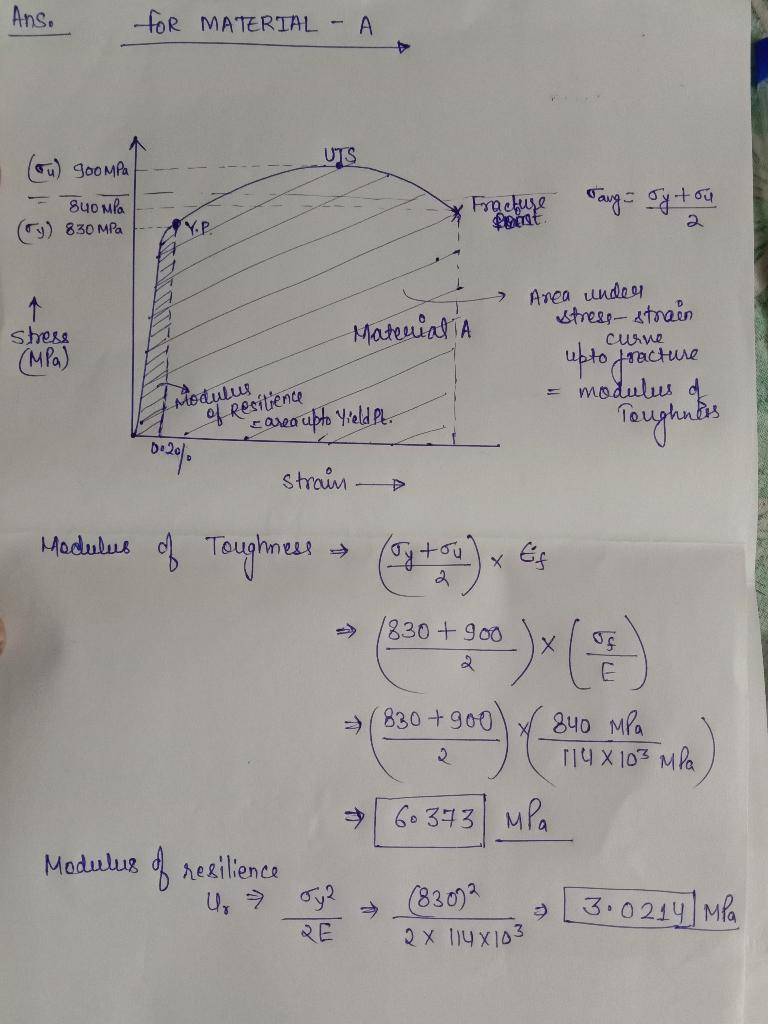 Ans. for MATERIAL - A
UTS
(σu) 900MPa
840 MPa
(σy) 830 MPa
Y.P.
Fracture
Point.
σavg = σy + σu / 2
↑
Stress
(MPa)
Material A
Area under
stress - strain
curve
upto fracture
= modulus of
Toughness
Modulus
of Resilience
= area upto Yield Pt.
0.2%
Strain →
Modulus of Toughness ⇒ (σy + σu / 2) × Ef
⇒ (830 + 900 / 2) × (σf / E)
⇒ (830 + 900 / 2) × (840 MPa / 114 × 10³ MPa)
⇒ 6.373 MPa
Modulus of resilience
Ur ⇒ σy² / 2E ⇒ (830)² / 2 × 114×10³ ⇒ 3.0214 MPa